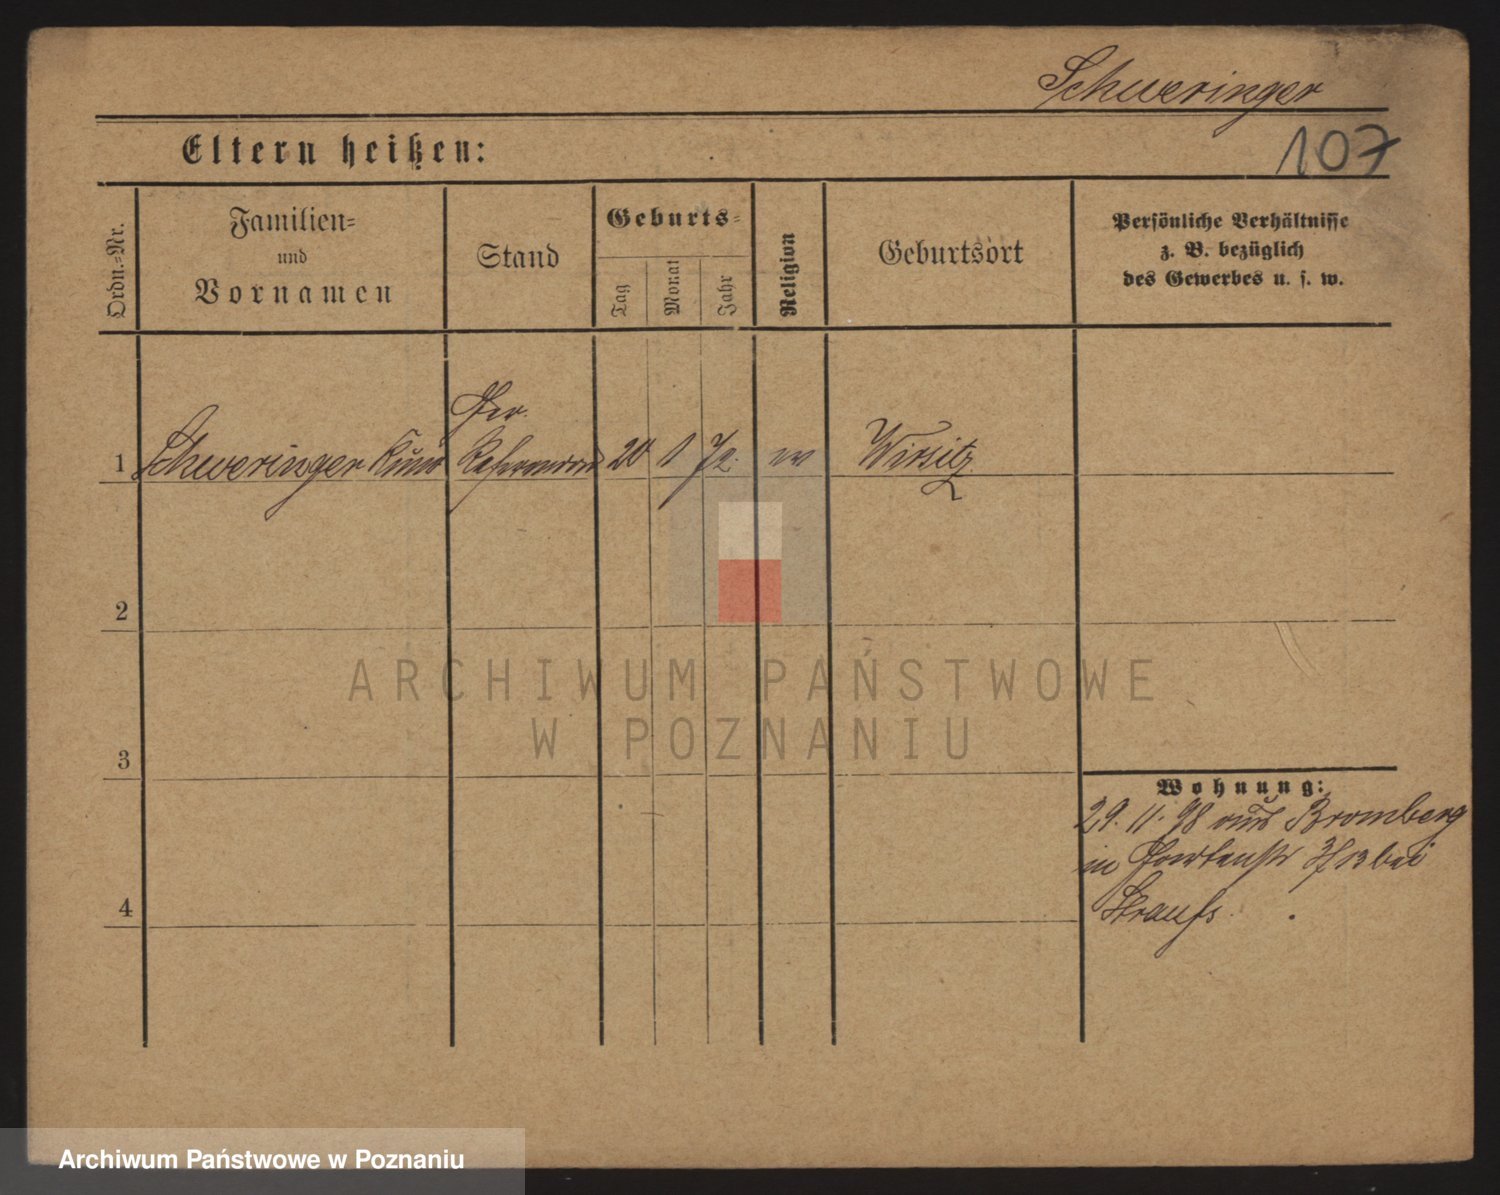 Schweringer
107
Eltern heißen:
Ordn.-Nr.
Familien-
und
Vornamen
Stand
Geburts-
Tag
Monat
Jahr
Religion
Geburtsort
Persönliche Verhältnisse
z. B. bezüglich
des Gewerbes u. s. w.
1 Schweringer Referendar 20 1 72. ev Wirsitz
2
3
4
Wohnung:
29. 11. 98 aus Bromberg
in 3/13 bei
Strauss
ARCHIWUM PAŃSTWOWE
W POZNANIU
Archiwum Państwowe w Poznaniu